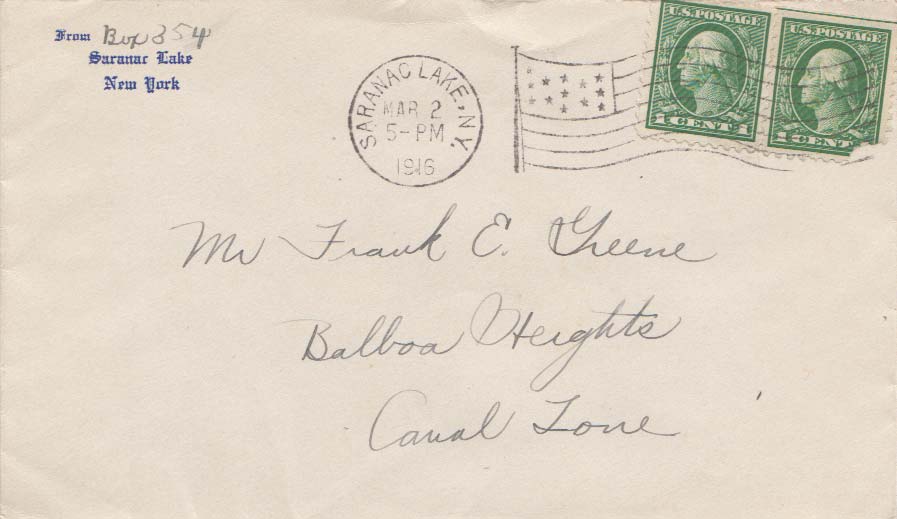 From Box 354
Saranac Lake
New York
SARANAC LAKE, N.Y.
MAR 2
5-PM
1916
U.S. POSTAGE
1 CENT 1
U.S. POSTAGE
1 CENT
Mr Frank E. Greene
Balboa Heights
Canal Zone